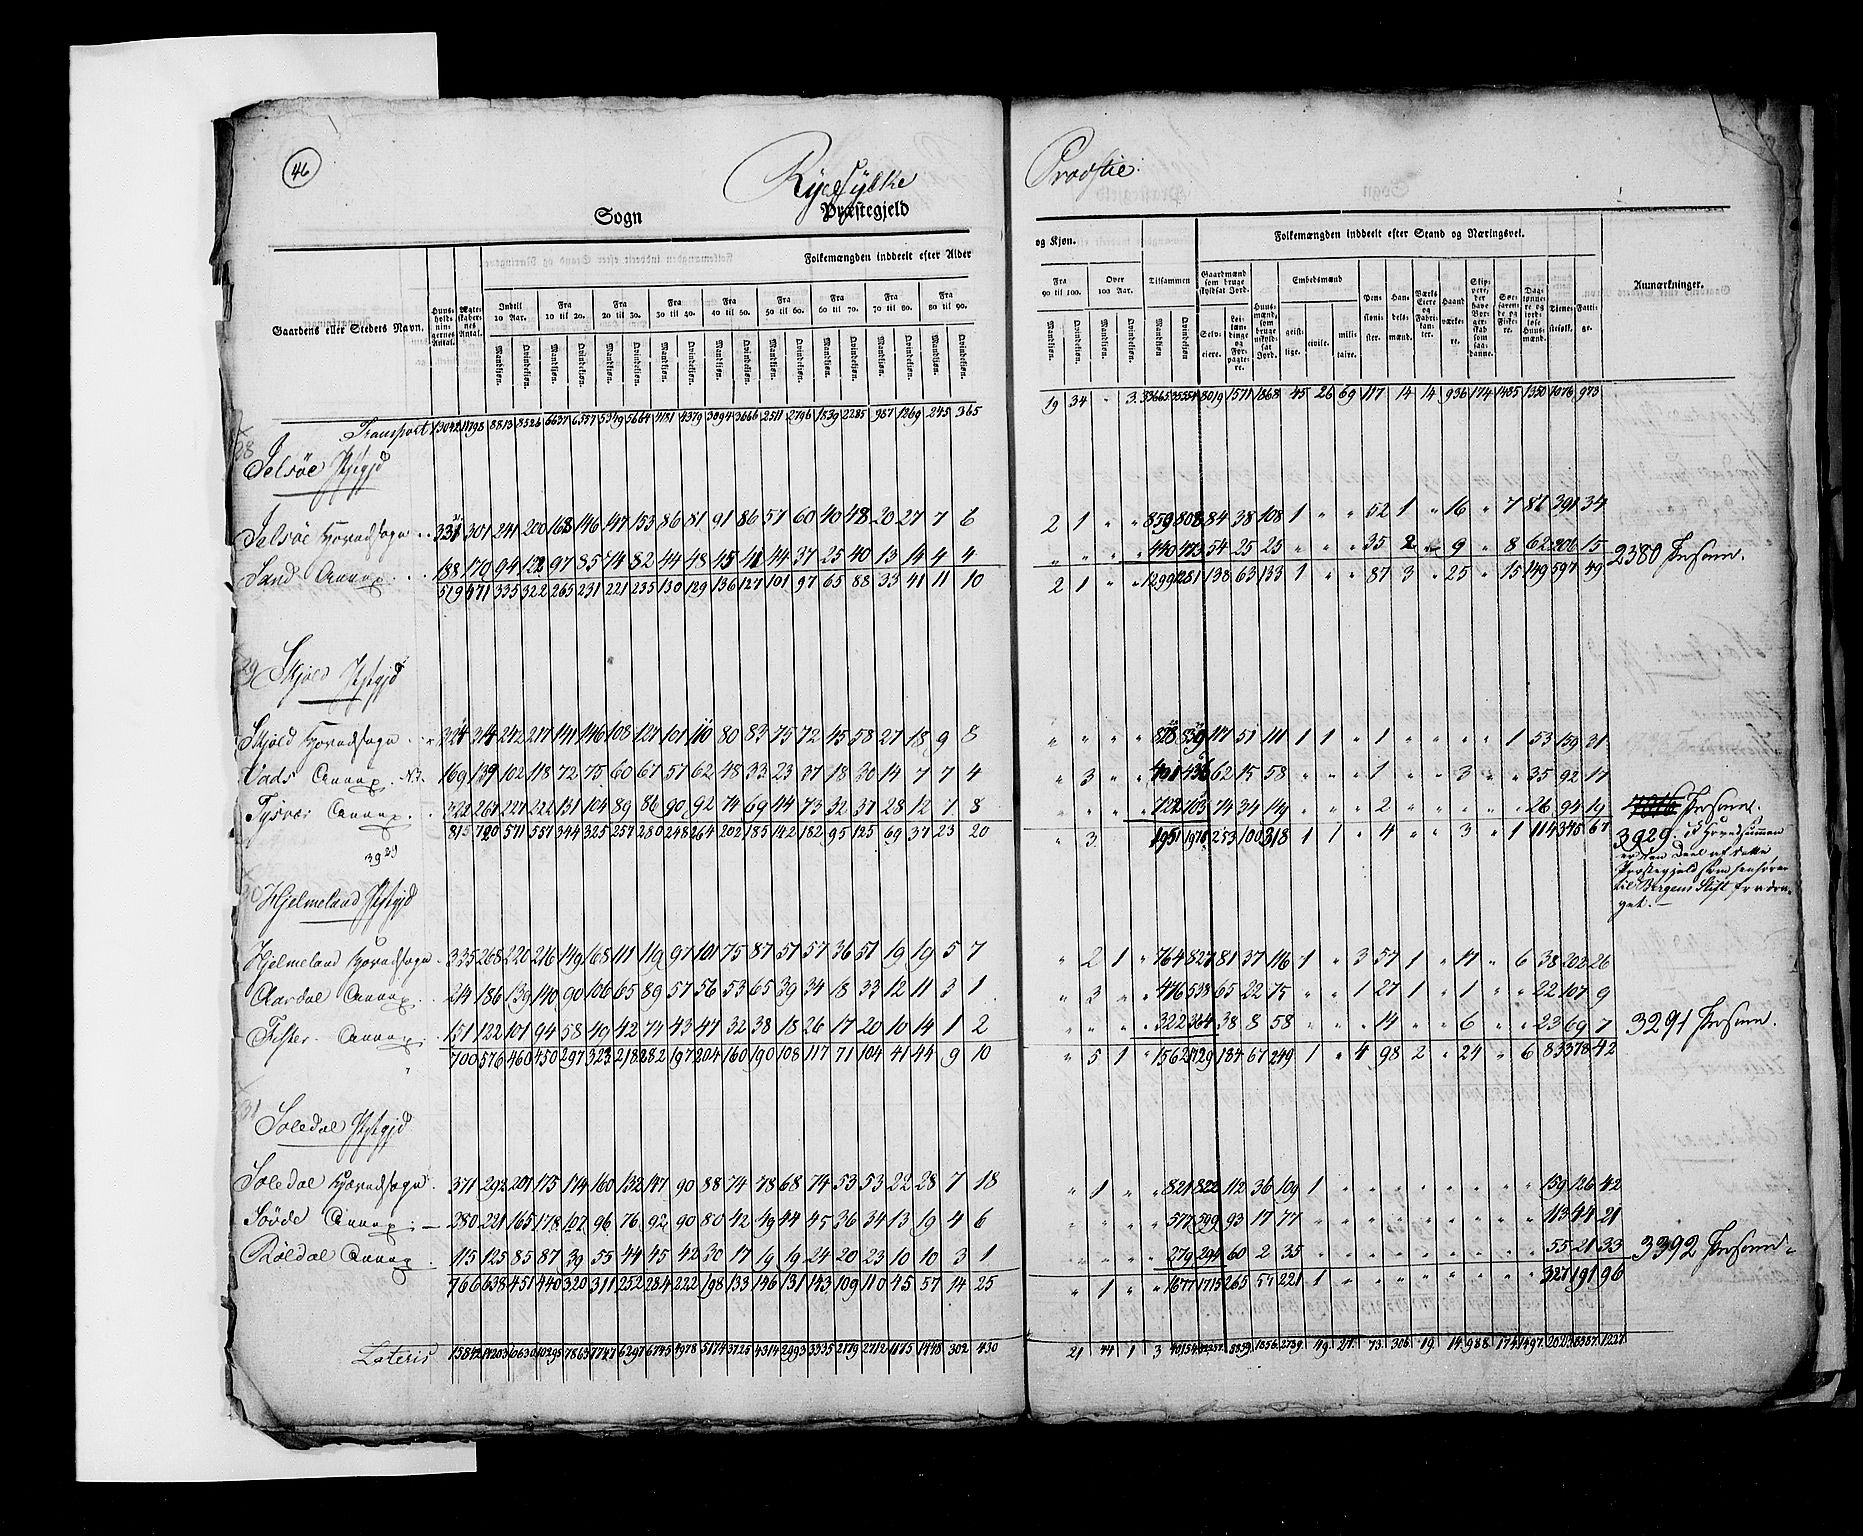 46
Ryefylke Provstie.
Sogn Præstegjeld
Gaardens eller Stedets Navn. Huusholdningernes Antal. Ægteskabernes Antal. Folkemængden inddeelt efter Alder og Kjøn. Folkemængden inddeelt efter Stand og Næringsvei. Anmærkninger.
Indtil 10 Aar. Fra 10 til 20. Fra 20 til 30. Fra 30 til 40. Fra 40 til 50. Fra 50 til 60. Fra 60 til 70. Fra 70 til 80. Fra 80 til 90. Fra 90 til 100. Over 100 Aar. Tilsammen
Mandkjøn. Qvindekjøn.
Embedsmænd
geistlige. civile. militaire.
Transport 13042 11798 8813 8526 6637 6337 5349 5664 4181 4379 3094 3666 2511 2796 1839 2285 987 1269 245 365 19 34 " 3 33665 35354 8019 1571 1868 45 26 69 117 14 14 936 174 1485 1350 7076 973
28
Jelsöe Pstgjd
Jelsöe Hovedsogn 331 301 241 200 168 146 147 153 86 81 91 86 57 60 40 48 20 27 7 6 2 1 " " 859 808 84 38 108 1 " " 52 1 " 16 " 7 87 391 34
Sand Annex 188 170 94 122 97 85 74 82 44 48 45 41 44 37 25 40 13 14 4 4 " " " " 440 473 54 25 25 " " " 35 2 " 9 " 8 62 206 15 2380 Personer.
519 471 335 322 265 231 221 235 130 129 136 127 101 97 65 88 33 41 11 10 2 1 " " 1299 1281 138 63 133 1 " " 87 3 " 25 " 15 149 597 49
29 Skjold Pstgjd
Skjold Hovedsogn 324 314 242 217 141 146 108 127 101 110 80 83 75 72 45 58 27 18 9 8 " " " " 828 839 117 51 141 1 1 " 1 " " " " 1 53 159 31
Vads Annex 169 139 102 118 72 75 60 67 57 62 48 33 23 37 18 30 14 7 7 4 " 3 " " 401 436 62 15 58 " " " 1 " " 3 " " 35 92 17
Tysvær Annex 322 267 227 222 131 104 89 86 90 92 74 69 44 73 32 37 28 12 7 8 " " " " 722 703 74 34 119 " " " 2 " " " " " 26 94 19 Personer.
815 720 571 557 344 325 257 280 248 264 202 185 142 182 95 125 69 37 23 20 " 3 1951 1978 253 100 318 1 1 " 4 " " 3 " 1 114 345 67 3929. Af Hovedsummen
3929
er den Deel af dette
Præstegjeld som henhører
til Bergens Stift fradra-
get.
Hjelmeland Pstgjd
Hjelmeland Hovedsogn 335 268 220 216 149 168 111 119 97 101 75 87 51 57 36 51 19 19 5 7 " 2 1 " 764 827 81 37 116 1 " 3 57 1 " 17 " 6 38 202 26
Aardal Annex 214 186 139 140 90 106 65 89 57 56 53 65 39 34 18 33 12 11 3 1 " 3 " " 476 538 65 22 75 " " 1 27 1 " 1 " " 22 107 9
Fister Annex 151 122 101 94 58 49 42 74 43 47 32 38 18 26 17 20 10 14 1 2 " " " " 322 364 38 8 58 " " " 14 " " 6 " " 23 69 7 3291 Personer.
700 576 460 450 297 323 218 282 197 204 160 190 108 117 71 104 41 44 9 10 " 5 1 " 1562 1729 184 67 249 1 " 4 98 2 " 24 " 6 83 378 42
31
Soledal Pstgjd
Soledal Hovedsogn 371 292 201 175 174 160 132 147 90 88 74 78 68 74 53 53 22 28 7 18 " 1 " " 821 822 112 36 109 1 " " " " " " " " 159 126 42
Sövde Annex 280 221 165 178 107 96 76 92 90 80 42 49 44 45 36 34 13 19 4 6 " " " " 577 599 93 17 77 " " " " " " " " " 113 44 21
Röldal Annex 115 125 85 87 39 55 44 45 42 30 17 19 19 24 20 23 10 10 3 1 " " " " 279 294 60 2 35 " " " " " " " " " 55 21 33 3392 Personer
766 638 451 440 320 311 252 284 222 198 133 146 131 143 109 110 45 57 14 25 " 1 " " 1677 1715 265 55 221 1 " " " " " " " " 327 191 96
Lateris 15842 14203 10630 10295 7863 7747 6297 6745 4978 5174 3725 4314 2993 3335 2179 2712 1175 1448 302 430 21 44 1 3 40154 8859 1856 2739 49 27 73 306 19 14 988 174 1497 2023 8387 1227